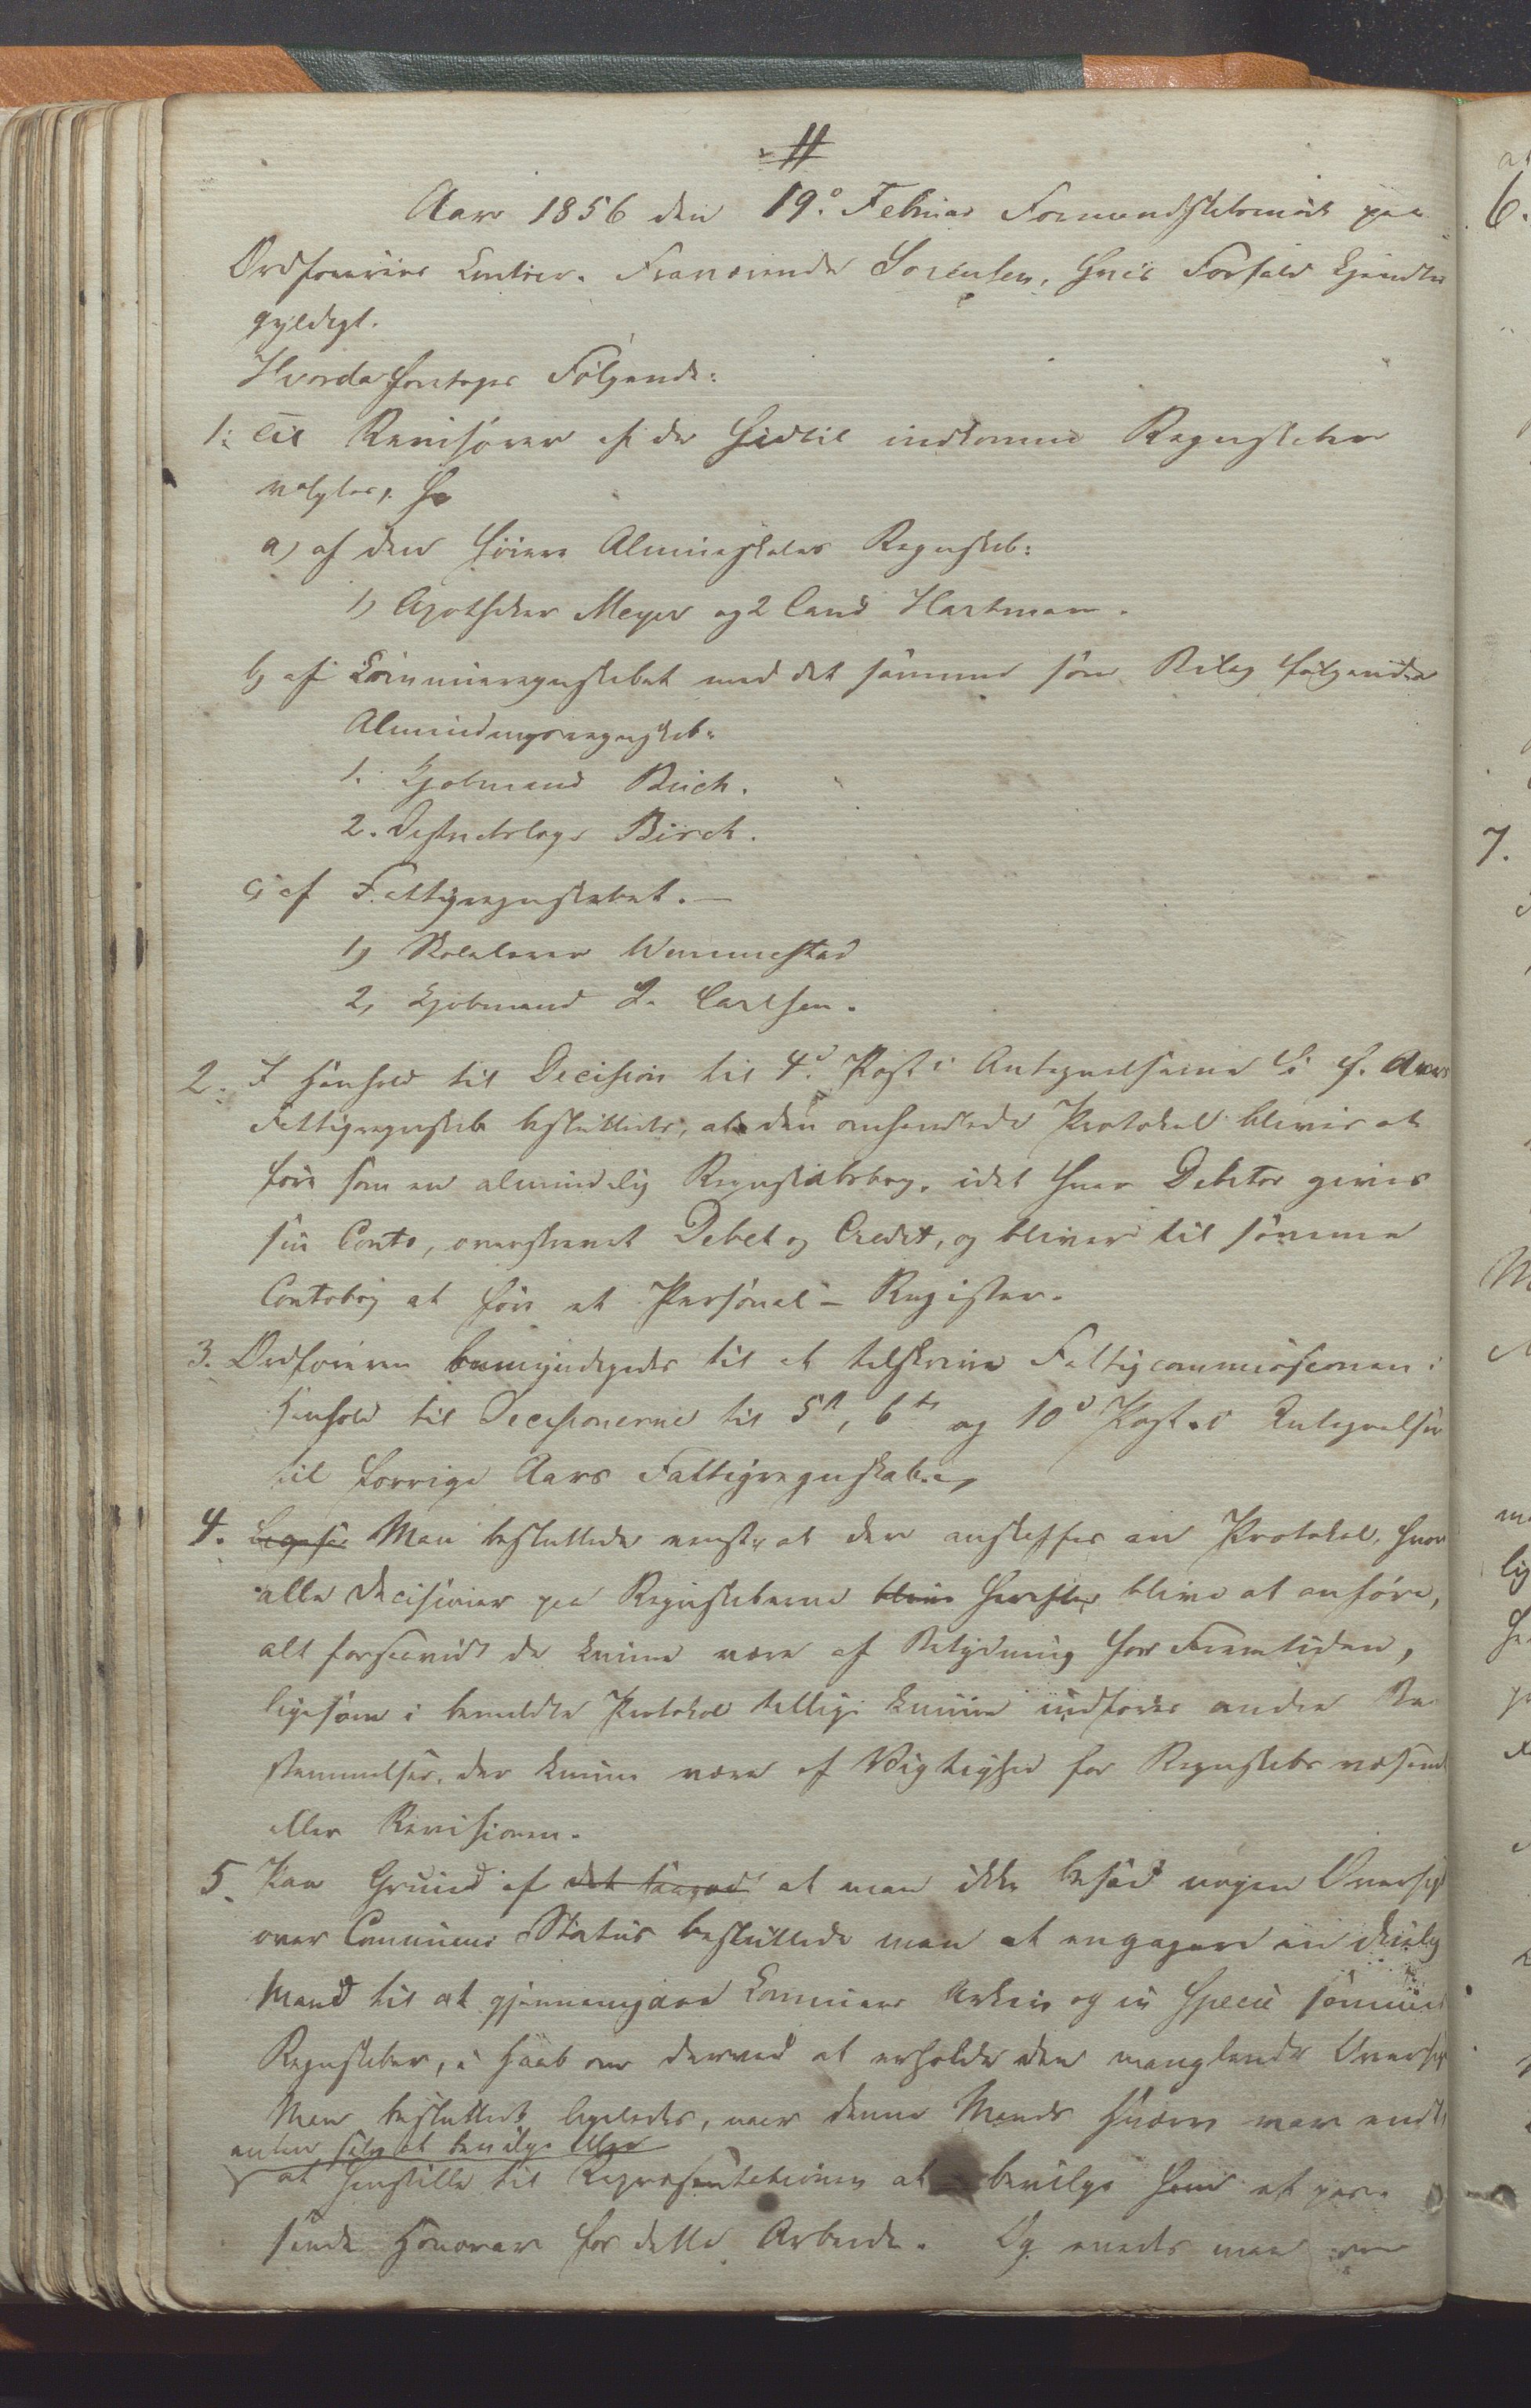 #
Aar 1856 den 19de Februar Formandskabsmøde paa
Ordførerens Contoir. Fraværende Sørensen, hvis Forfald kjendtes
gyldigt.
Hvorda foretoges Følgende:
1. Til Revisorer af de hidtil indkomne Regnskaber
valgtes,
a) af den høiere Almueskoles Regnskab:
1) Apotheker Meyer og 2 Cand Hartmann.
b) af Communeregnskabet med det samme som Bilag følgende
Almindingsregnskab:
1. Kjøbmand Buch.
2. Districtslæge Birch.
c) af Fattigregnskabet.—
1) Skolelærer Wennestad
2) Kjøbmand L. Carlsen.
2. I Henhold til Decision til 4d Post i Antegnelserne til f. Aars
Fattigregnskab besluttedes, at den omhandlede Protokol bliver at
føre som en almindelig Regnskabsbog, idet hver Debitor gives
sin Conto, overskrevet Debet og Credit, og bliver til samme
Contobog at føre et Personal-Register.
3. Ordføreren bemyndigedes til at tilskrive Fattigcommissionen i
Henhold til Decisionerne til 5te, 6te og 10de Post i Antegnelser
til forrige Aars Fattigregnskab.
4. Man besluttede at der anskaffes en Protokol, hvor
alle Decisioner paa Regnskaberne blive herefter blive at anføre,
alt forsaavidt de kunne være af Betydning for Fremtiden,
ligesom i bemeldte Protokol tillige kunne indføres andre Be
stemmelser, der kunne være af Vigtighed for Regnskabsvæsenet
eller Revisionen.
5. Paa Grund af det at man ikke besad nogen Oversigt
over Communens Status besluttede man at engagere en duelig
Mand til at gjennemgaae Communens Arkiv og in specie samme
Regnskaber, i Haab om derved at erholde den manglende Oversigt
Man besluttede ligeledes, naar denne Mands Hverv var endt,
enten selv at bevilge eller
at henstille til Repræsentationen at bevilge ham et pas-
sende Honorar for dette Arbeide. Og enedes man om